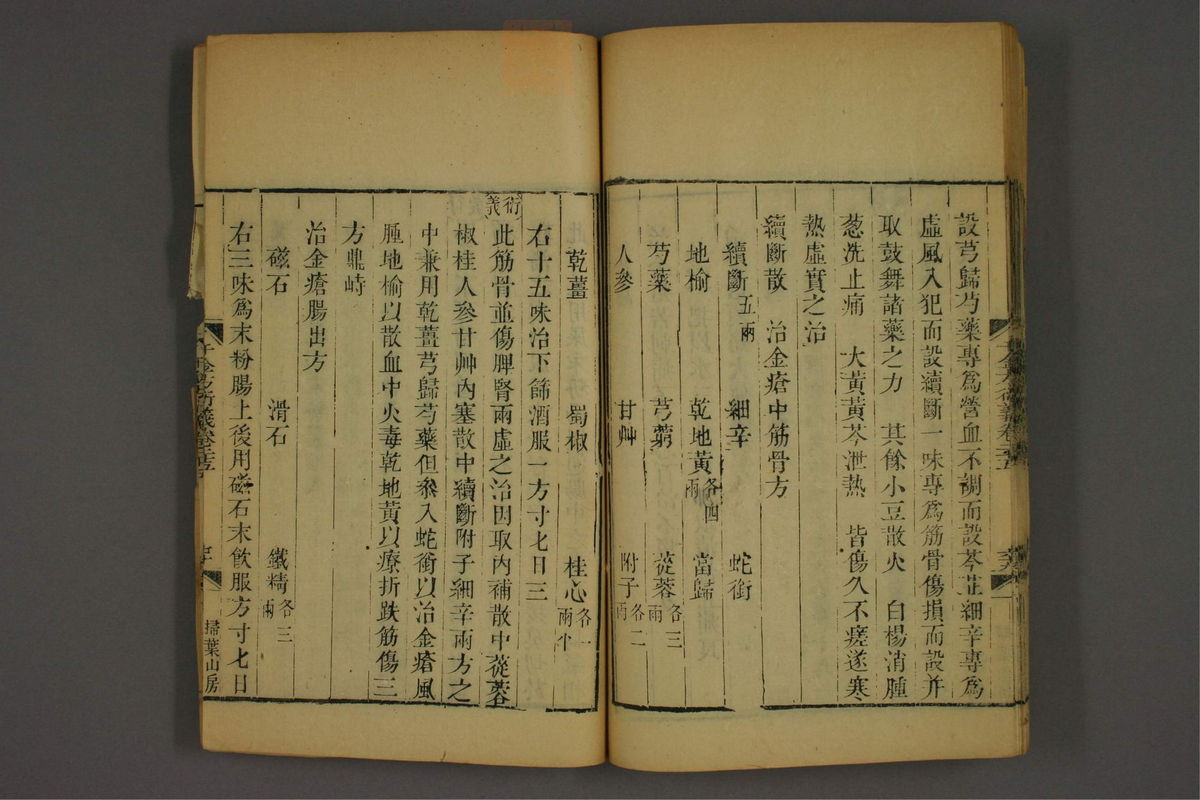 設芎歸芍藥專為營血不調而設芩芷細辛專為
虛風入犯而設續斷一味專為筋骨傷損而設并
取鼓舞諸藥之力　其餘小豆散火　白楊消腫
葱洗止痛　大黃黃芩泄熱　皆傷久不瘥遂寒
熱虛實之治
續斷散　治金瘡中筋骨方
續斷五兩　細辛　蛇銜
地榆　乾地黃各四兩　當歸
芍藥　芎藭　蓯蓉各三兩
人參　甘艸　附子各二兩
乾薑　蜀椒　桂心各一兩半
右十五味治下篩酒服一方寸七日三
衍義
此筋骨並傷脾腎兩虛之治因取內補散中蓯蓉
椒桂人參甘艸內塞散中續斷附子細辛兩方之
中兼用乾薑芎歸芍藥但參入蛇銜以治金瘡風
腫地榆以散血中火毒乾地黃以療折跌筋傷三
方鼎峙
治金瘡腸出方
磁石　滑石　鐵精各三兩
右三味為末粉腸上後用磁石末飲服方寸七日
千金方衍義卷二十五
掃葉山房